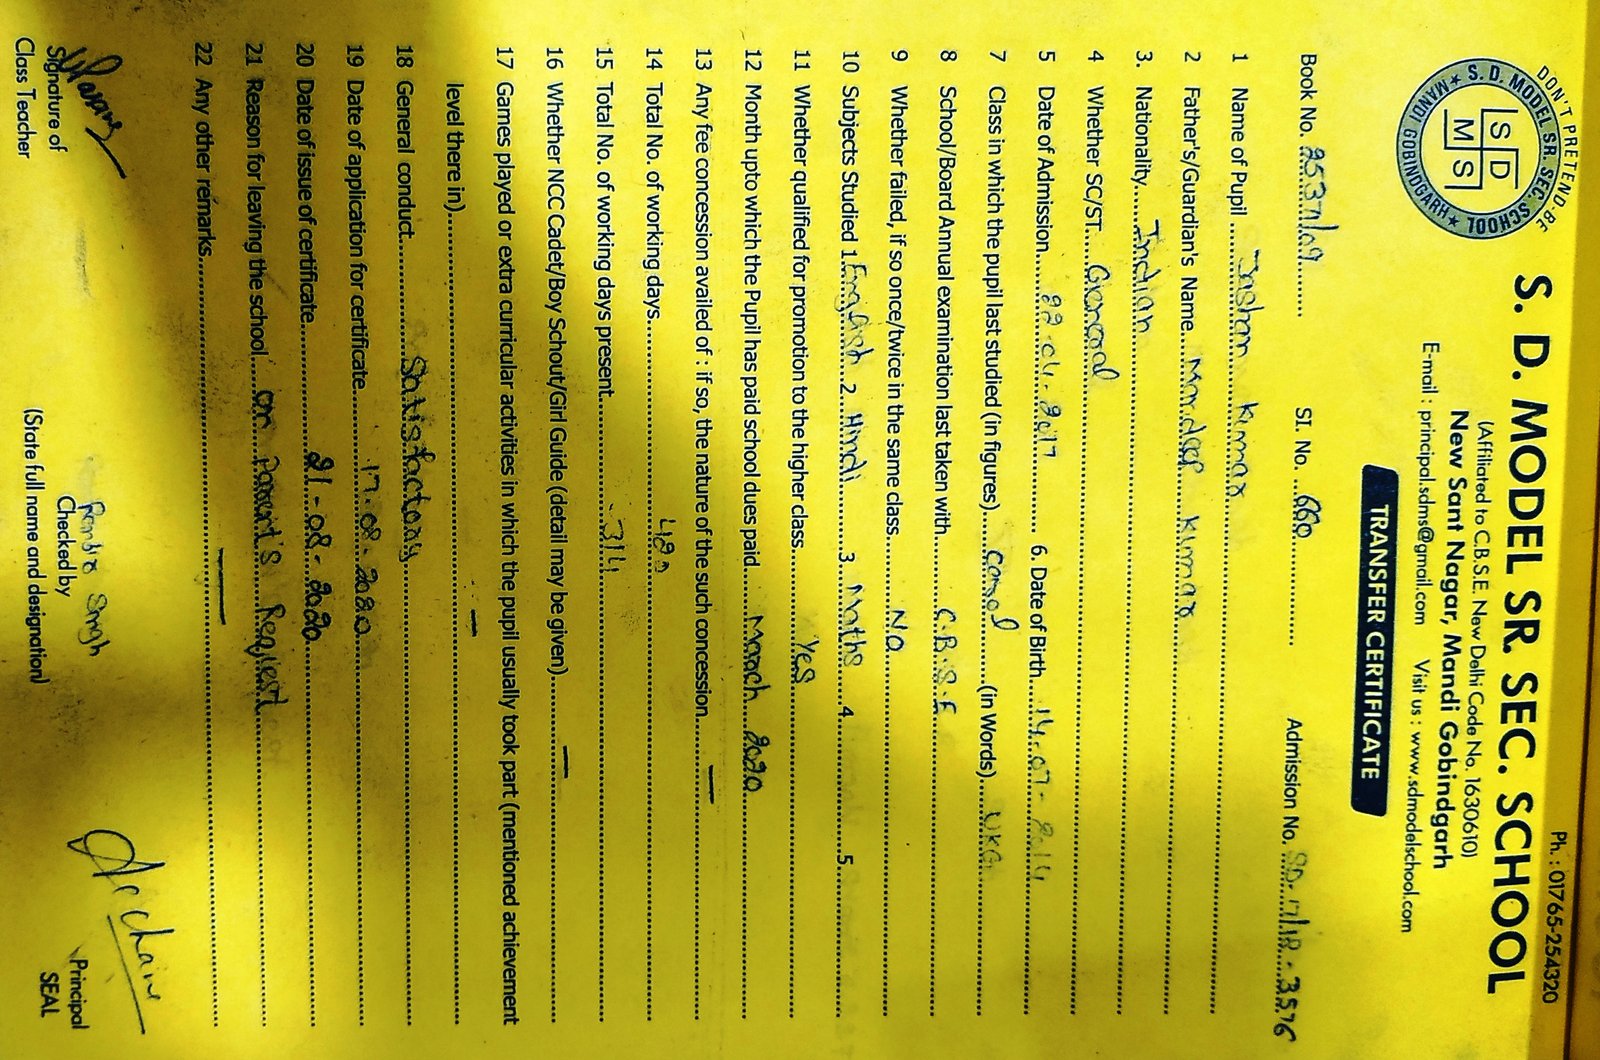 Ph. : 01765-254320
DON'T PRETEND BE
S. D. MODEL SR. SEC. SCHOOL
★ MANDI GOBINDGARH ★
S D
M S
S. D. MODEL SR. SEC. SCHOOL
(Affiliated to C.B.S.E. New Delhi Code No. 1630610)
New Sant Nagar, Mandi Gobindgarh
E-mail : principal.sdms@gmail.com Visit us : www.sdmodelschool.com
TRANSFER CERTIFICATE
Book No. 2537/09 Sl. No. 660 Admission No. SD.17/18.3596
1 Name of Pupil Jashan Kumar
2 Father's/Guardian's Name Mandeep Kumar
3. Nationality Indian
4 Whether SC/ST General
5 Date of Admission 22.04.2017 6. Date of Birth 14.07.2014
7 Class in which the pupil last studied (in figures) (in Words) UKG
8 School/Board Annual examination last taken with C.B.S.E
9 Whether failed, if so once/twice in the same class No
10 Subjects Studied 1 English 2 Hindi 3 Maths 4 5
11 Whether qualified for promotion to the higher class Yes
12 Month upto which the Pupil has paid school dues paid March 2020
13 Any fee concession availed of : if so, the nature of the such concession —
14 Total No. of working days
15 Total No. of working days present 314
16 Whether NCC Cadet/Boy Schout/Girl Guide (detail may be given) —
17 Games played or extra curricular activities in which the pupil usually took part (mentioned achievement
level there in) —
18 General conduct Satisfactory
19 Date of application for certificate 17.08.2020
20 Date of issue of certificate 21-08-2020
21 Reason for leaving the school on Parent's Request
22 Any other remarks —
Singh
Signature of Checked by Principal
Class Teacher (State full name and designation) SEAL